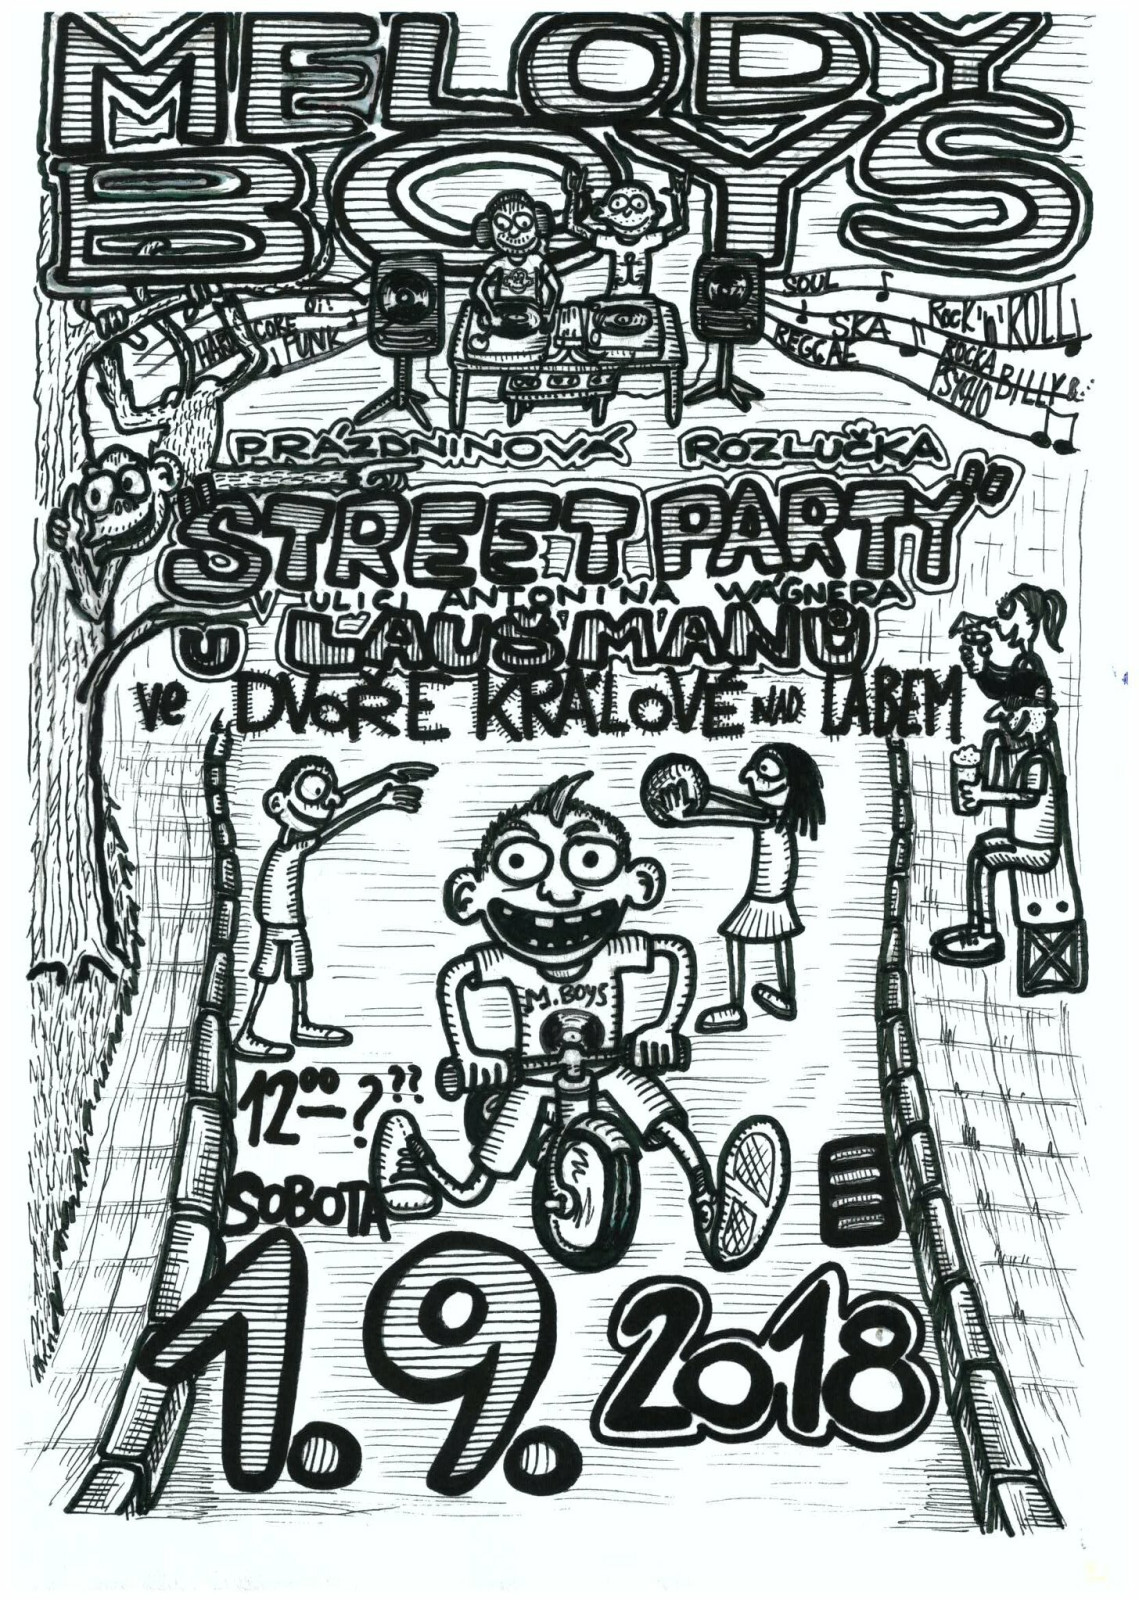 MELODY
BOYS
OI!
HARD CORE
PUNK
SOUL
SKA
REGGAE
ROCK 'n' ROLL
ROCKA
PSYCHO BILLY &..
PRÁZDNINOVÁ ROZLUČKA
"STREET PARTY"
V ULICI ANTONÍNA WÁGNERA
U LAUŠMANŮ
ve DVOŘE KRÁLOVÉ NAD LABEM
M. BOYS
12⁰⁰ — ? ??
SOBOTA
1. 9. 2018